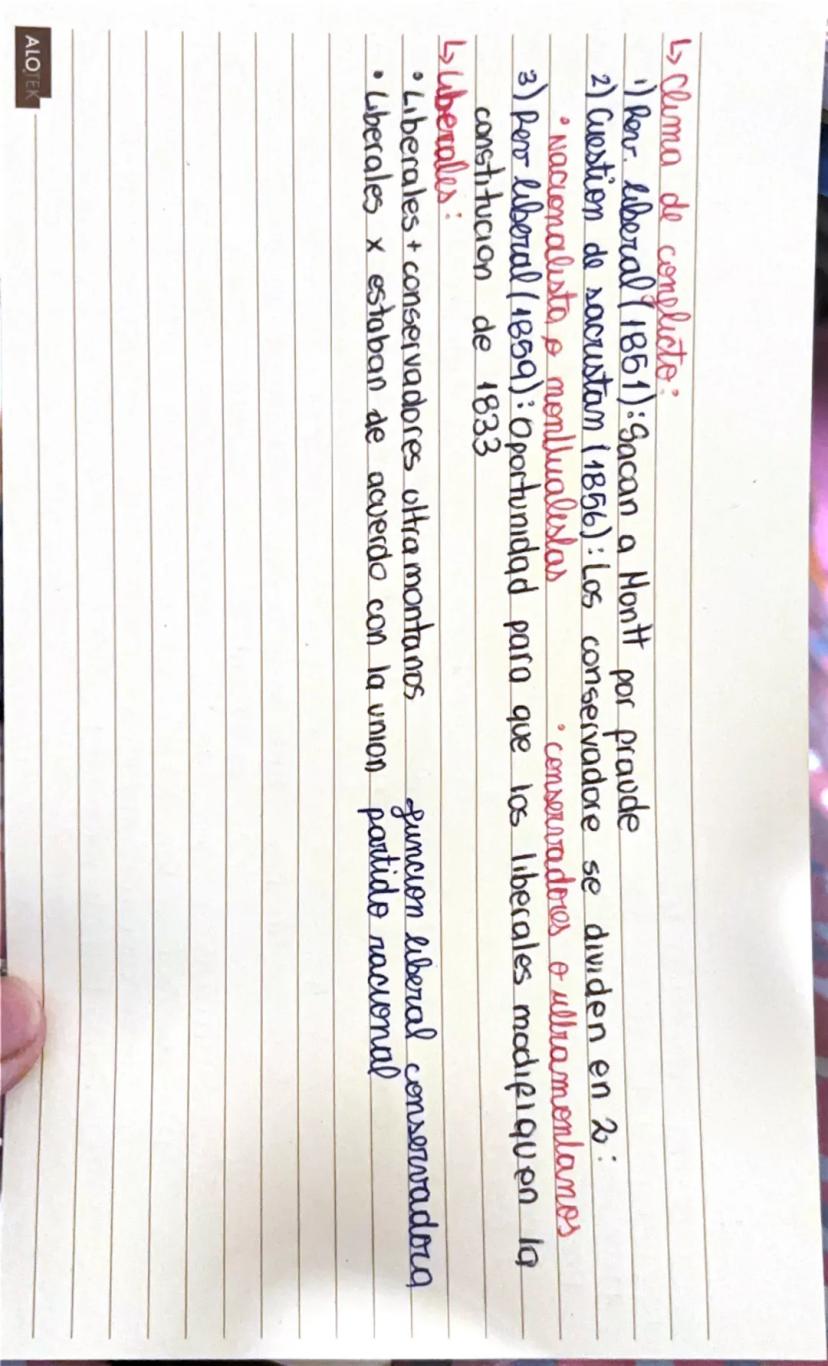 ↳ Clima de conflicto:
1) Rev. liberal (1851): Sacan a Montt por fraude
2) Cuestion de sacristan (1856): Los conservadore se dividen en 2:
• Nacionalista o monttvaristas • conservadores o ultramontanos
3) Rev liberal (1859): Oportunidad para que los liberales modifiquen la
constitucion de 1833
↳ Liberales:
• Liberales + conservadores ultramontanos funcion liberal conservadora
• Liberales x estaban de acuerdo con la union partido nacional
ALOTEK